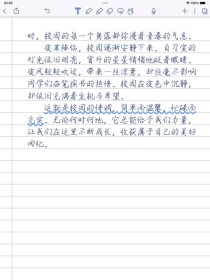 时，校园的每一个角落都弥漫着青春的气息。
夜幕降临，校园逐渐安静下来。自习室的
灯光依旧明亮，窗外的星星悄悄地眨着眼睛。
夜风轻轻吹过，带来一丝凉意，却丝毫不影响
同学们奋笔疾书的热情。校园在夜色中沉静，
却依旧充满着生机与希望。
这就是校园的情调，简单而温馨，忙碌而
充实。无论何时何地，它总能给予我们力量，
让我们在这里不断成长，收获属于自己的美好
回忆。